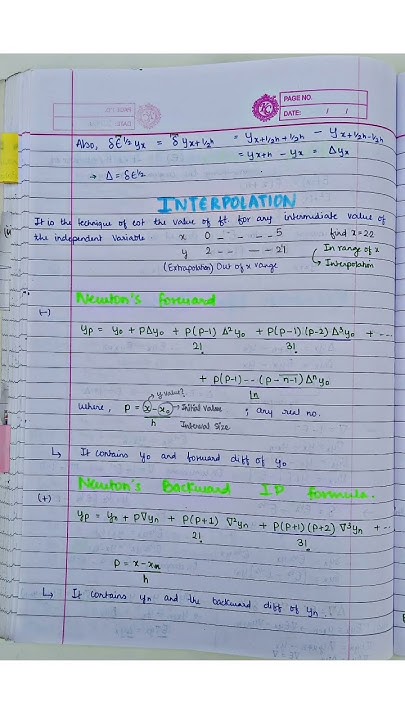 PAGE NO.
DATE: / /
Also, δE^1/2 yx = δ yx+1/2h = yx+1/2h+1/2h - yx+1/2h-1/2h
= yx+h - yx = Δyx
→ Δ = δE^1/2
INTERPOLATION
It is the technique of est the value of ft. for any intermediate value of
the independent variable. x 0 -- --- 5 find x=2.2
y 2 -- --- 27 In range of x
(Extrapolation) Out of x range → Interpolation
Newton's forward
(-)
yp = y0 + pΔy0 + p(p-1) Δ²y0 + p(p-1)(p-2) Δ³y0 + ---
2! 3!
+ p(p-1)--(p-n-1) Δⁿy0
n
where, p = x-x0 → y value? → Initial value ; any real no.
h Interval size
↳ It contains y0 and forward diff of y0
Newton's Backward IP formula.
(+)
yp = yn + p∇yn + p(p+1) ∇²yn + p(p+1)(p+2) ∇³yn + ---
2! 3!
p = x-xn
h
↳ It contains yn and the backward diff of yn.